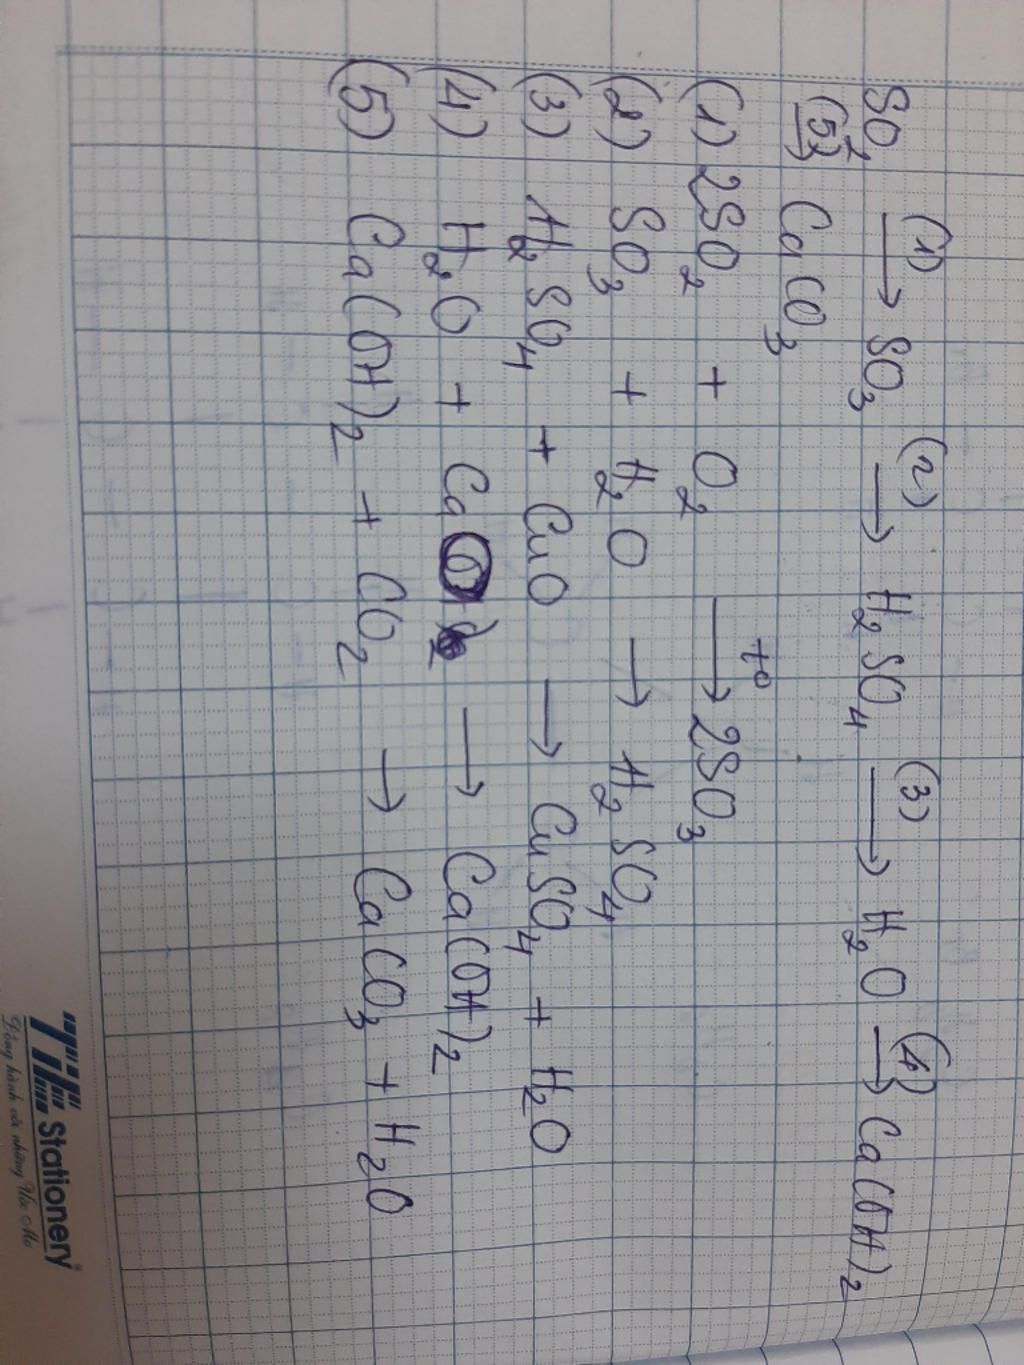 SO₂ —(1)→ SO₃ —(2)→ H₂SO₄ —(3)→ H₂O —(4)→ Ca(OH)₂
—(5)→ CaCO₃
(1) 2SO₂ + O₂ —t°→ 2SO₃
(2) SO₃ + H₂O → H₂SO₄
(3) H₂SO₄ + CuO → CuSO₄ + H₂O
(4) H₂O + CaO → Ca(OH)₂
(5) Ca(OH)₂ + CO₂ → CaCO₃ + H₂O
TL Stationery